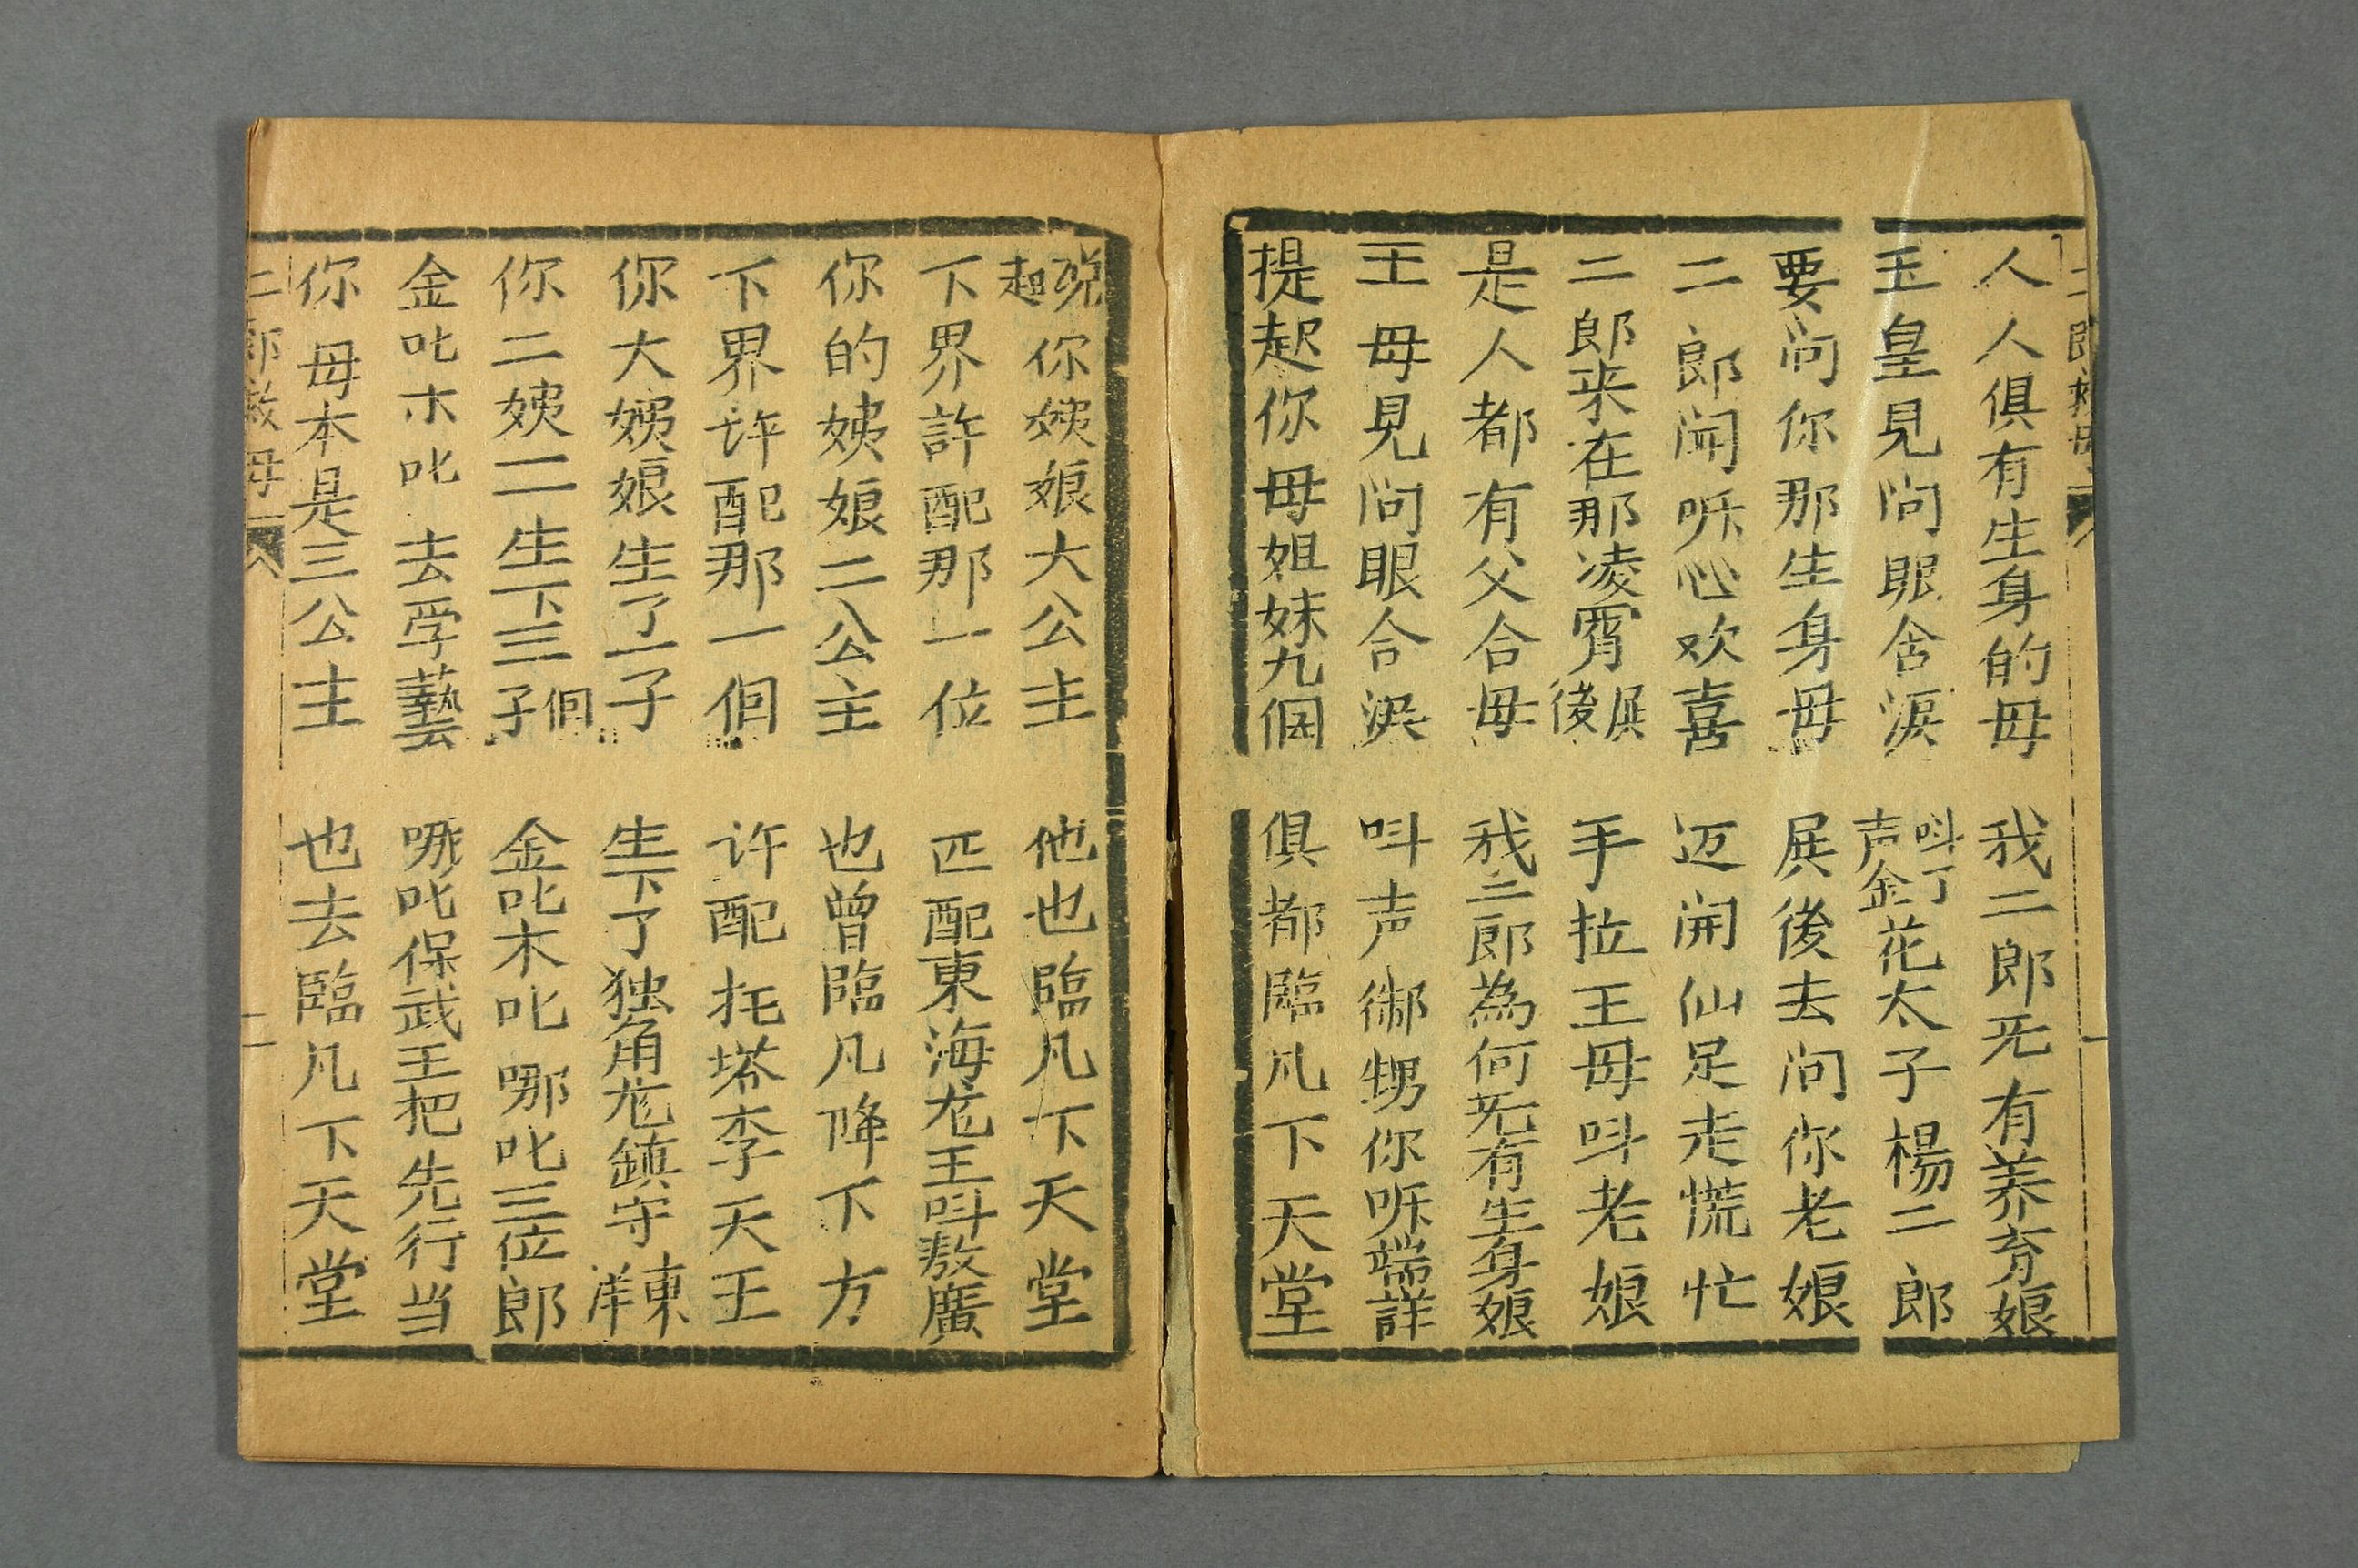 二郎救母 一
人人俱有生身的母 我二郎旡有养育娘
玉皇見问眼含淚 叫了声金花太子楊二郎
要问你那生身母 展後去问你老娘
二郎闻听心欢喜 迈開仙足走慌忙
二郎来在那凌霄展後 手拉王母叫老娘
是人都有父合母 我二郎為何旡有生身娘
王母見问眼含淚 叫声御甥你听端詳
提起你母姐妹九個 俱都臨凡下天堂
说起你姨娘大公主 他也臨凡下天堂
下界許配那一位 匹配東海龙王叫敖廣
你的姨娘二公主 也曾臨凡降下方
下界许配那一個 许配托塔李天王
你大姨娘生了一子 生下了独角龙鎮守東洋
你二姨一生下三個子 金叱木叱哪叱三位郎
金叱木叱去学藝 哪叱保武王把先行当
你母本是三公主 也去臨凡下天堂
二郎救母 二